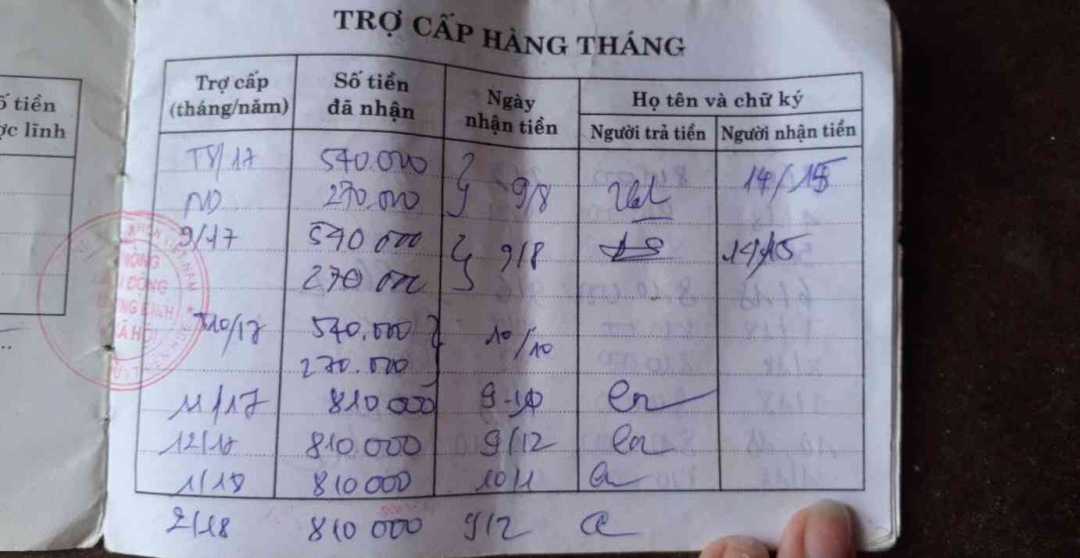 TRỢ CẤP HÀNG THÁNG
Trợ cấp (tháng/năm) Số tiền đã nhận Ngày nhận tiền Họ tên và chữ ký
Người trả tiền Người nhận tiền
ố tiền
ợc lĩnh
T8/17 540.000 9/8
270.000
9/17 540 000 9/8 14/15
270 000
T10/17 540.000 10/10
270.000
11/17 810 000
12/17 810.000 9/12
1/18 810 000 10/1
2/18 810 000 9/2